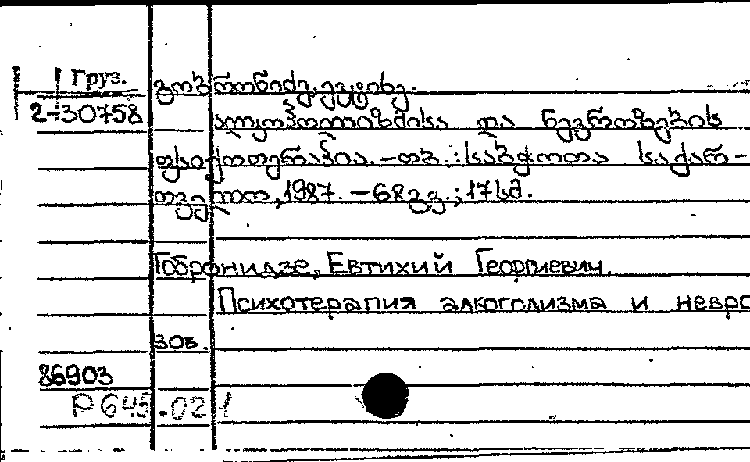 Груз.
გობრონიძე, ევტიხე.
2-30758
ალკოჰოლიზმისა და ნევროზების
ფსიქოთერაპია. – თბ.: საბჭოთა საქარ-
თველო, 1987. – 68 გვ.; 17 სმ.
Гобронидзе, Евтихий Георгиевич.
Психотерапия алкоголизма и невро
зов.
86903
Р 645.021